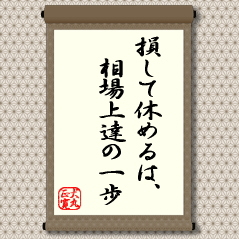 損して休めるは、
相場上達の一歩